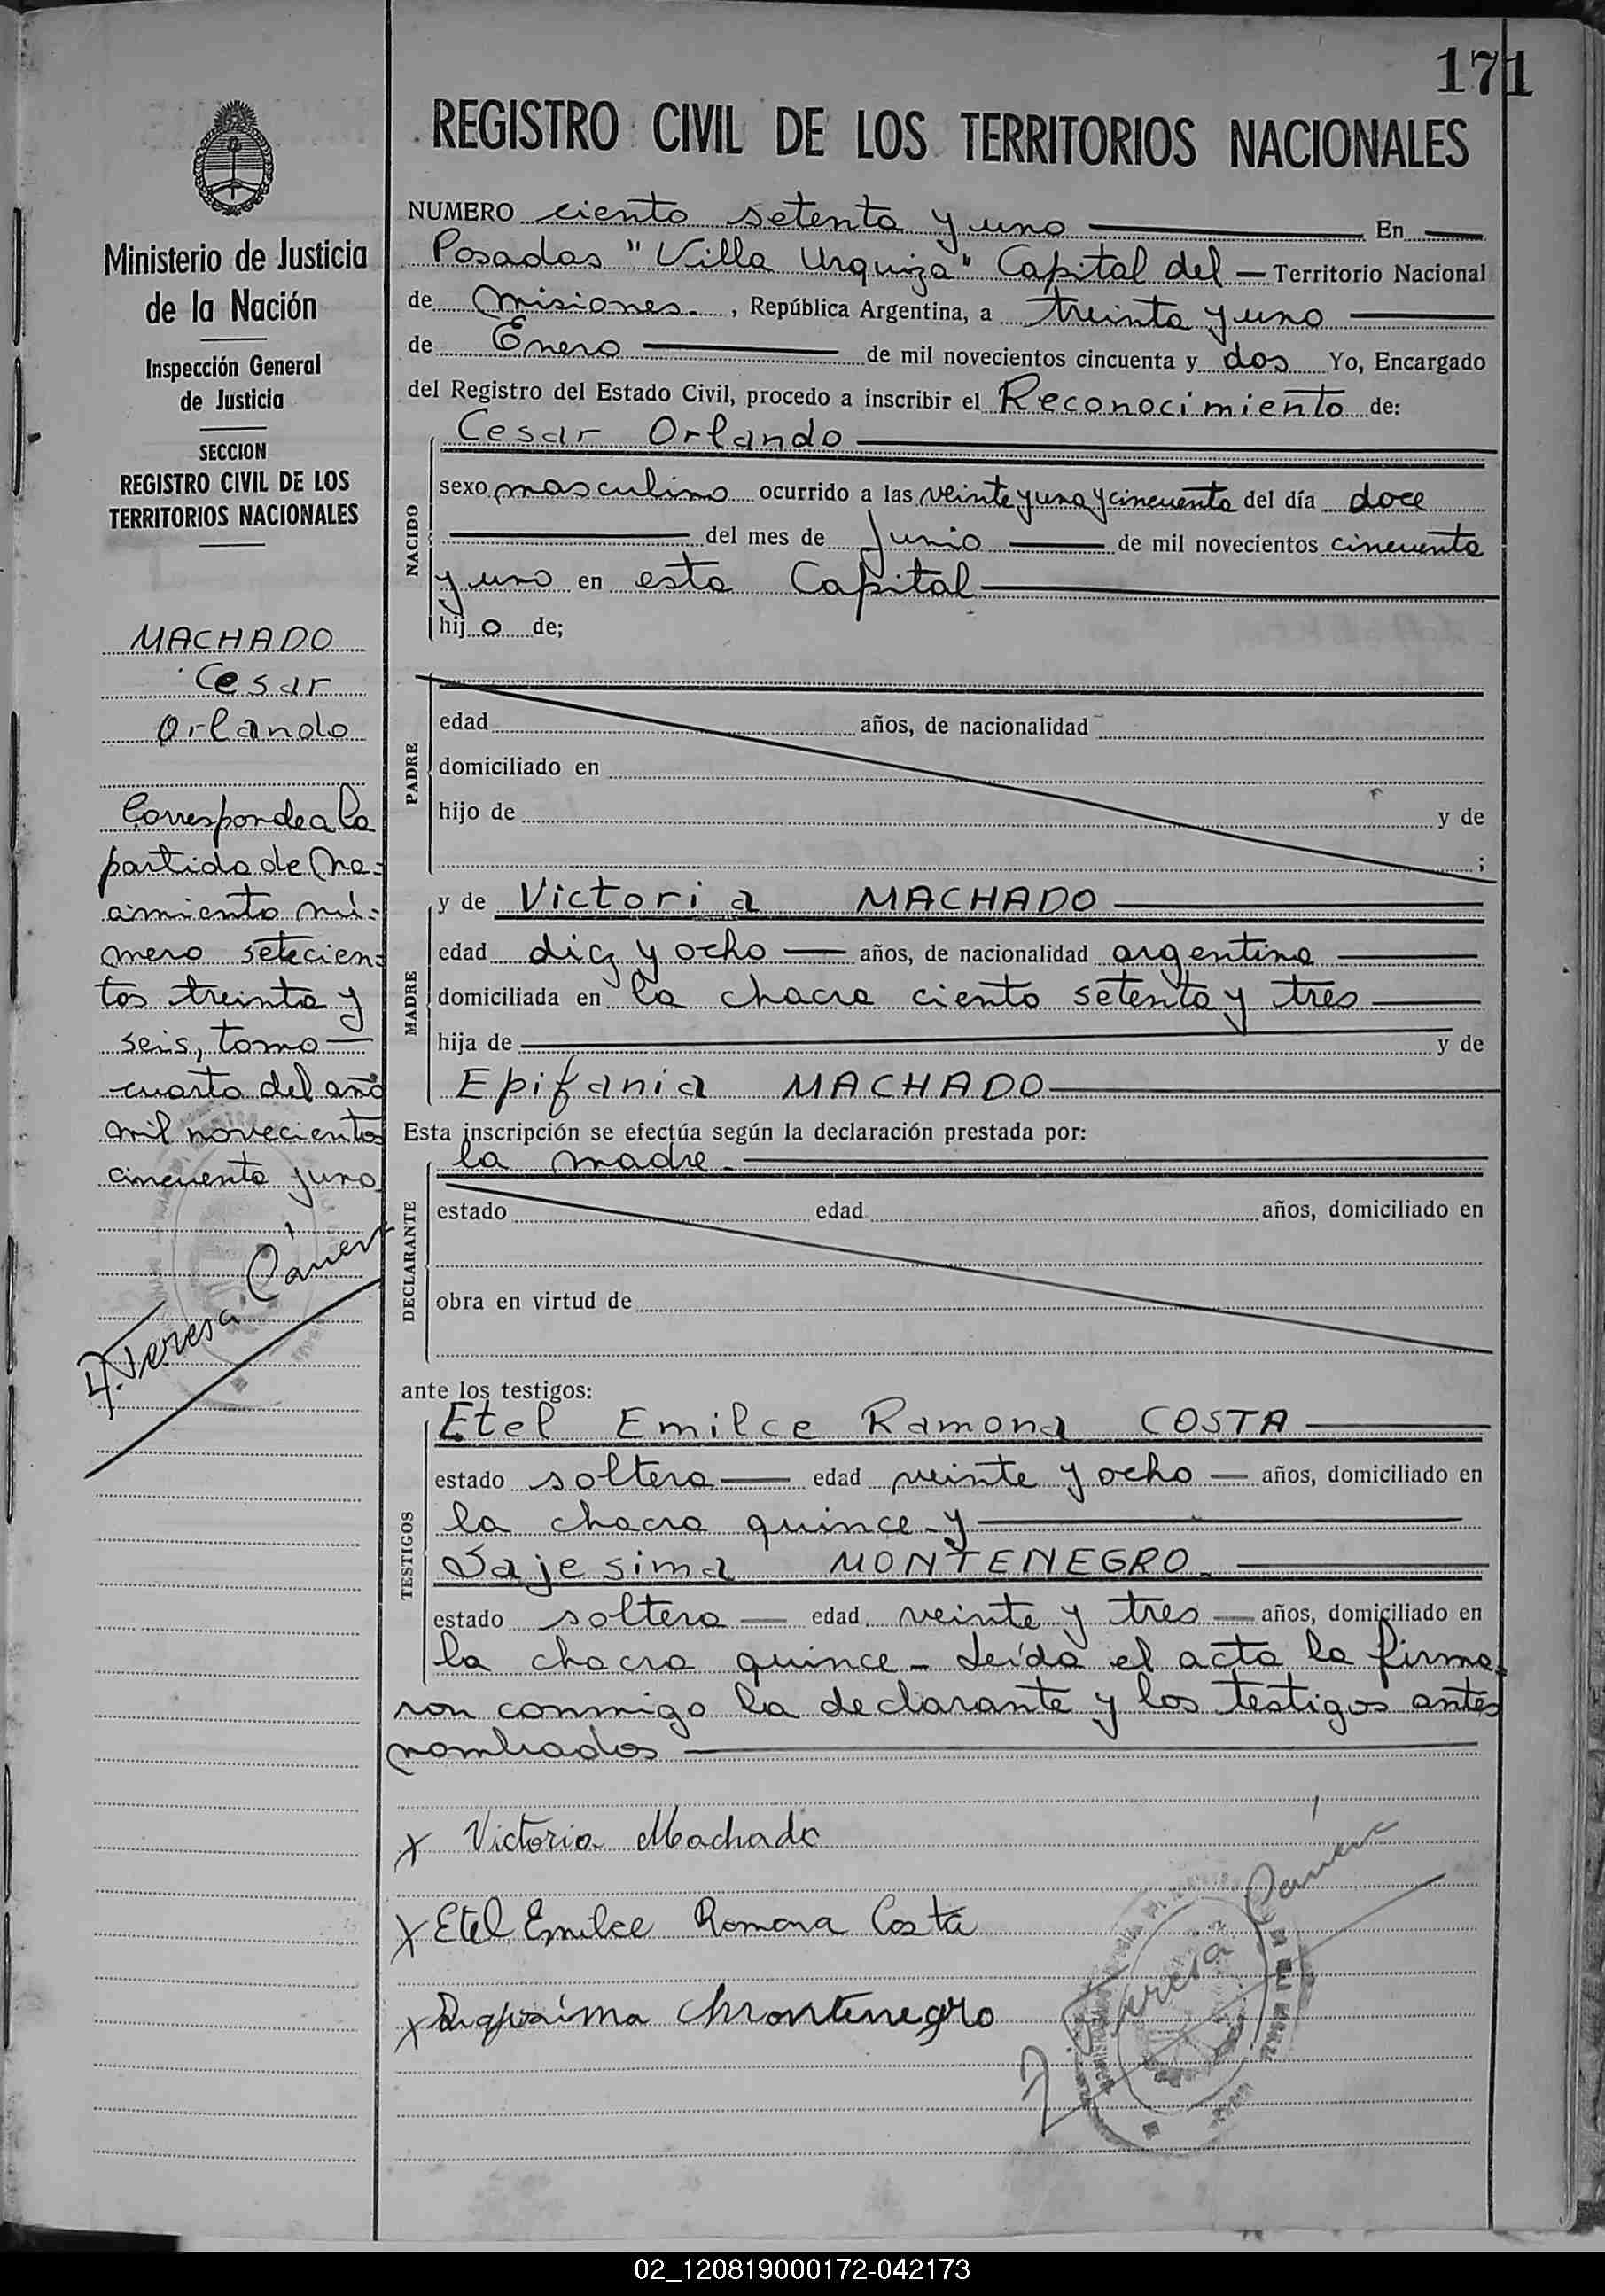 171
REGISTRO CIVIL DE LOS TERRITORIOS NACIONALES
Ministerio de Justicia
de la Nación
Inspección General
de Justicia
SECCION
REGISTRO CIVIL DE LOS
TERRITORIOS NACIONALES
MACHADO
Cesar
Orlando
Corresponde a la
partida de na-
cimiento nú-
mero setecien-
tos treinta y
seis, tomo
cuarto del año
mil novecientos
cincuenta y uno
NUMERO ciento setenta y uno En
Posadas "Villa Urquiza" Capital del Territorio Nacional
de Misiones. , República Argentina, a treinta y uno
de Enero de mil novecientos cincuenta y dos Yo, Encargado
del Registro del Estado Civil, procedo a inscribir el Reconocimiento de:
Cesar Orlando
NACIDO
sexo masculino ocurrido a las veinte y una y cincuenta del día doce
del mes de Junio de mil novecientos cincuenta
y uno en esta Capital
hijo de;
PADRE
edad años, de nacionalidad
domiciliado en
hijo de y de
;
MADRE
y de Victoria MACHADO
edad diez y ocho años, de nacionalidad argentina
domiciliada en la chacra ciento setenta y tres
hija de y de
Epifania MACHADO
Esta inscripción se efectúa según la declaración prestada por:
la madre.
DECLARANTE
estado edad años, domiciliado en
obra en virtud de
ante los testigos:
TESTIGOS
Etel Emilce Ramona COSTA
estado soltera edad veinte y ocho años, domiciliado en
la chacra quince y
Sajesima MONTENEGRO.
estado soltera edad veinte y tres años, domiciliado en
la chacra quince - Leída el acta la firma-
ron conmigo la declarante y los testigos antes
nombrados
x Victoria Machado
x Etel Emilce Ramona Costa
x Montenegro
02_120819000172-042173